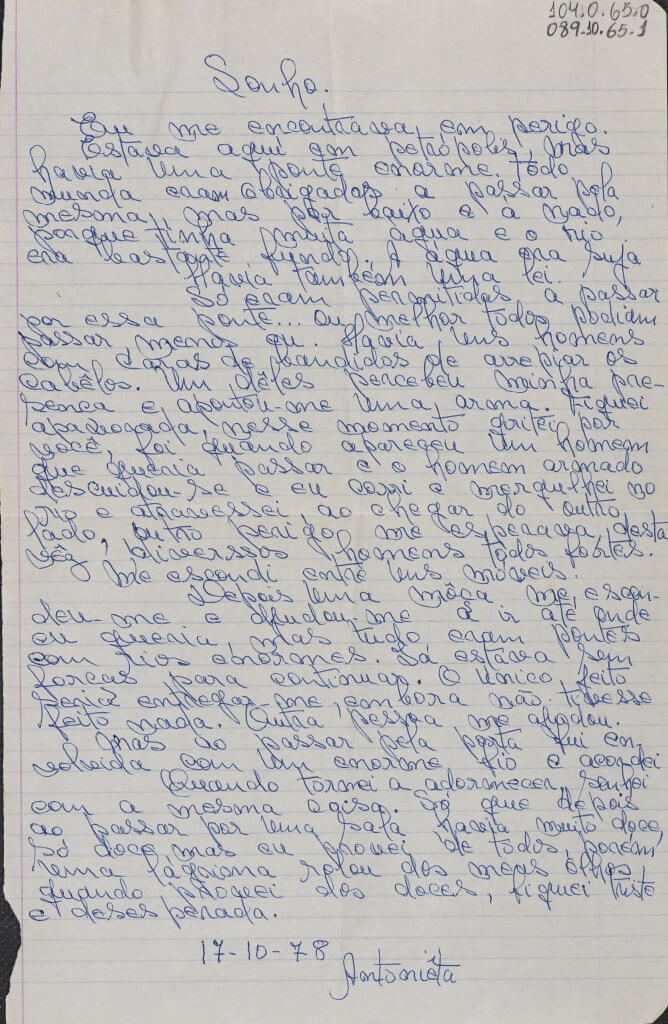 104.0.65.0
089.10.65-1
Sonho.
Eu me encontrava, em perigo.
Estava aqui em petrópoles, mas
havia uma ponte enorme. Todo
mundo eram obrigados a passar pela
mesma, mas por baixo e a nado,
porque tinha muita água e o rio
era bastante fundo. A água era suja
Havia também uma lei.
Só eram permitidas a passar
por essa ponte... ou melhor todos podiam
passar menos eu. Havia uns homens
com caras de bandidos de arrepiar os
cabêlos. Um dêles percebeu minha pre-
sença e apontou-me uma arma. Fiquei
apavorada, nesse momento gritei por
você, foi quando apareceu um homem
que queria passar e o homem armado
descuidou-se e eu corri e mergulhei no
rio e atravessei, ao chegar do outro
lado, outro perigo me esperava, desta
vêz, diversos homens todos fortes.
Me escondi entre uns móveis.
Depois uma môça me, escon-
deu-me e ajudou-me a ir até onde
eu queria, mas tudo eram pontes
com rios enormes. Já estava sem
forças para continuar. O único jeito
seria entregar-me, embora não tivesse
feito nada. Outra pessoa me ajudou.
Mas ao passar pela porta fui en-
volvida com um enorme fio e acordei
Quando tornei a adormecer, sonhei
com a mesma coisa. Só que depois
ao passar por uma sala havia muito doce,
só doce, mas eu provei de todos, porém,
uma lágrima rolou dos meus olhos
quando provei dos doces, fiquei triste
e desesperada.
17-10-78
Antoniêta